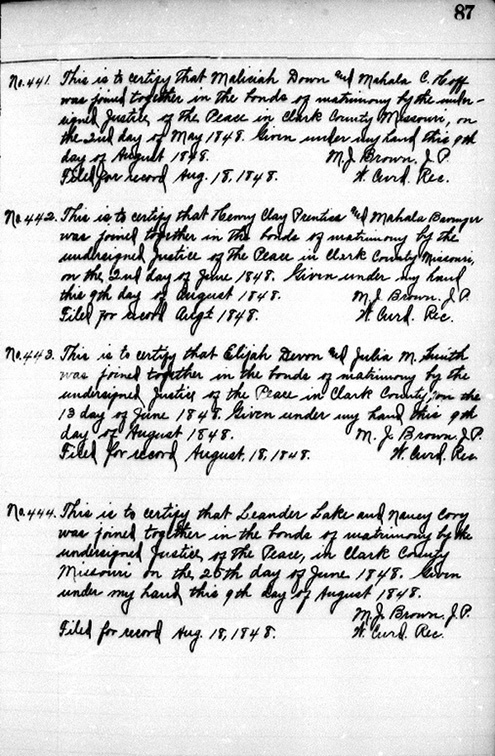 87
No. 441. This is to certify that Maliciah Down and Mahala C. Hoff
was joined together in the bonds of matrimony by the under-
signed Justice, of the Peace in Clark County Missouri, on
the 22nd day of May 1848. Given under my hand this 9th
day of August 1848. M. J. Brown, J. P.
Filed for record Aug. 18, 1848. W. Curd. Rec.
No. 442. This is to certify that Henry Clay Prentice and Mahala
was joined together in the bonds of matrimony by the
undersigned Justice of the Peace in Clark County Missouri,
on the, 2nd day of June 1848. Given under my hand
this 9th day of August 1848. M. J. Brown, J. P.
Filed for record 1848. W. Curd. Rec.
No. 443. This is to certify that Elijah Devon and Julia M. Smith
was joined together in the bonds of matrimony by the
undersigned Justice of the Peace in Clark County, on the
13 day of June 1848. Given under my hand this 9th
day of August 1848. M. J. Brown, J. P.
Filed for record August, 18, 1848. W. Curd. Rec.
No. 444. This is to certify that Leander Lake and Nancy Cory
was joined together in the bonds of matrimony by the
undersigned Justice, of the Peace, in Clark County
Missouri on the, 25th day of June 1848. Given
under my hand this 9th day of August 1848.
M. J. Brown. J. P.
Filed for record Aug. 18, 1848. W. Curd. Rec.